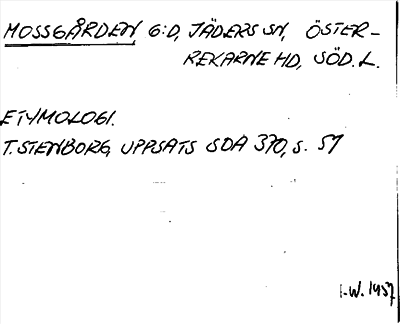 MOSSGÅRDEN G:D, JÄDERS SN, ÖSTER-
REKARNE HD, SÖD. L.
ETYMOLOGI.
T. STENBORG, UPPSATS SOA 370, S. 57
I-W. 1957